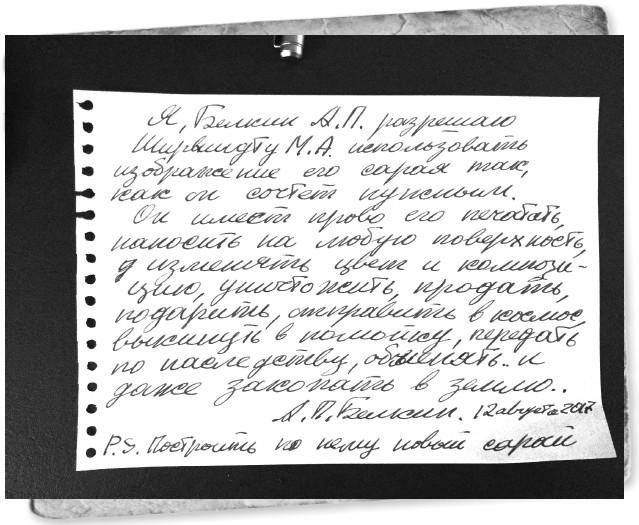 Я, Белкин А.П. разрешаю
Ширвиндту М.А. использовать
изображение его сарая так,
как он сочтет нужным.
Он имеет право его печатать,
наносить на любую поверхность,
изменять цвет и компози-
цию, уничтожить, продать,
подарить, отправить в космос,
выкинуть в помойку, передать
по наследству, обменять.. и
даже закопать в землю..
А.П. Белкин. 12 августа 2017
P.S. Построить по нему новый сарай